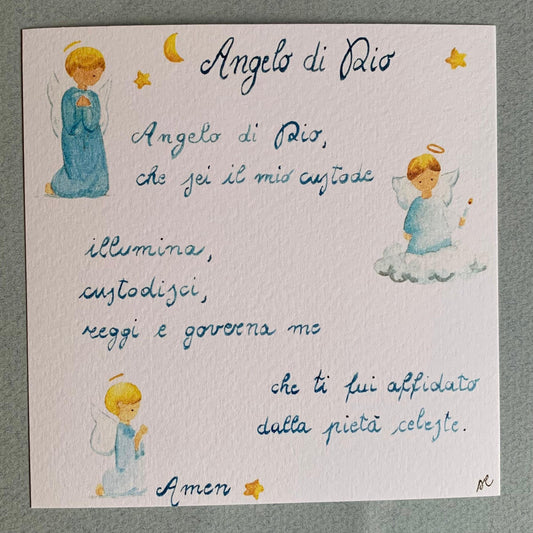 Angelo di Dio
Angelo di Dio,
che sei il mio custode
illumina,
custodisci,
reggi e governa me
che ti fui affidato
dalla pietà celeste.
Amen